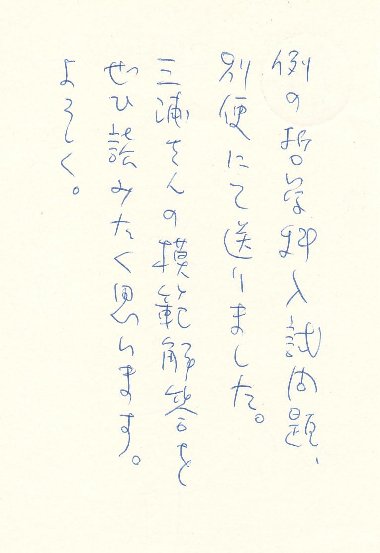 例の哲学科入試問題、
別便にて送りました。
三浦さんの模範解答を
ぜひ読みたく思います。
よろしく。